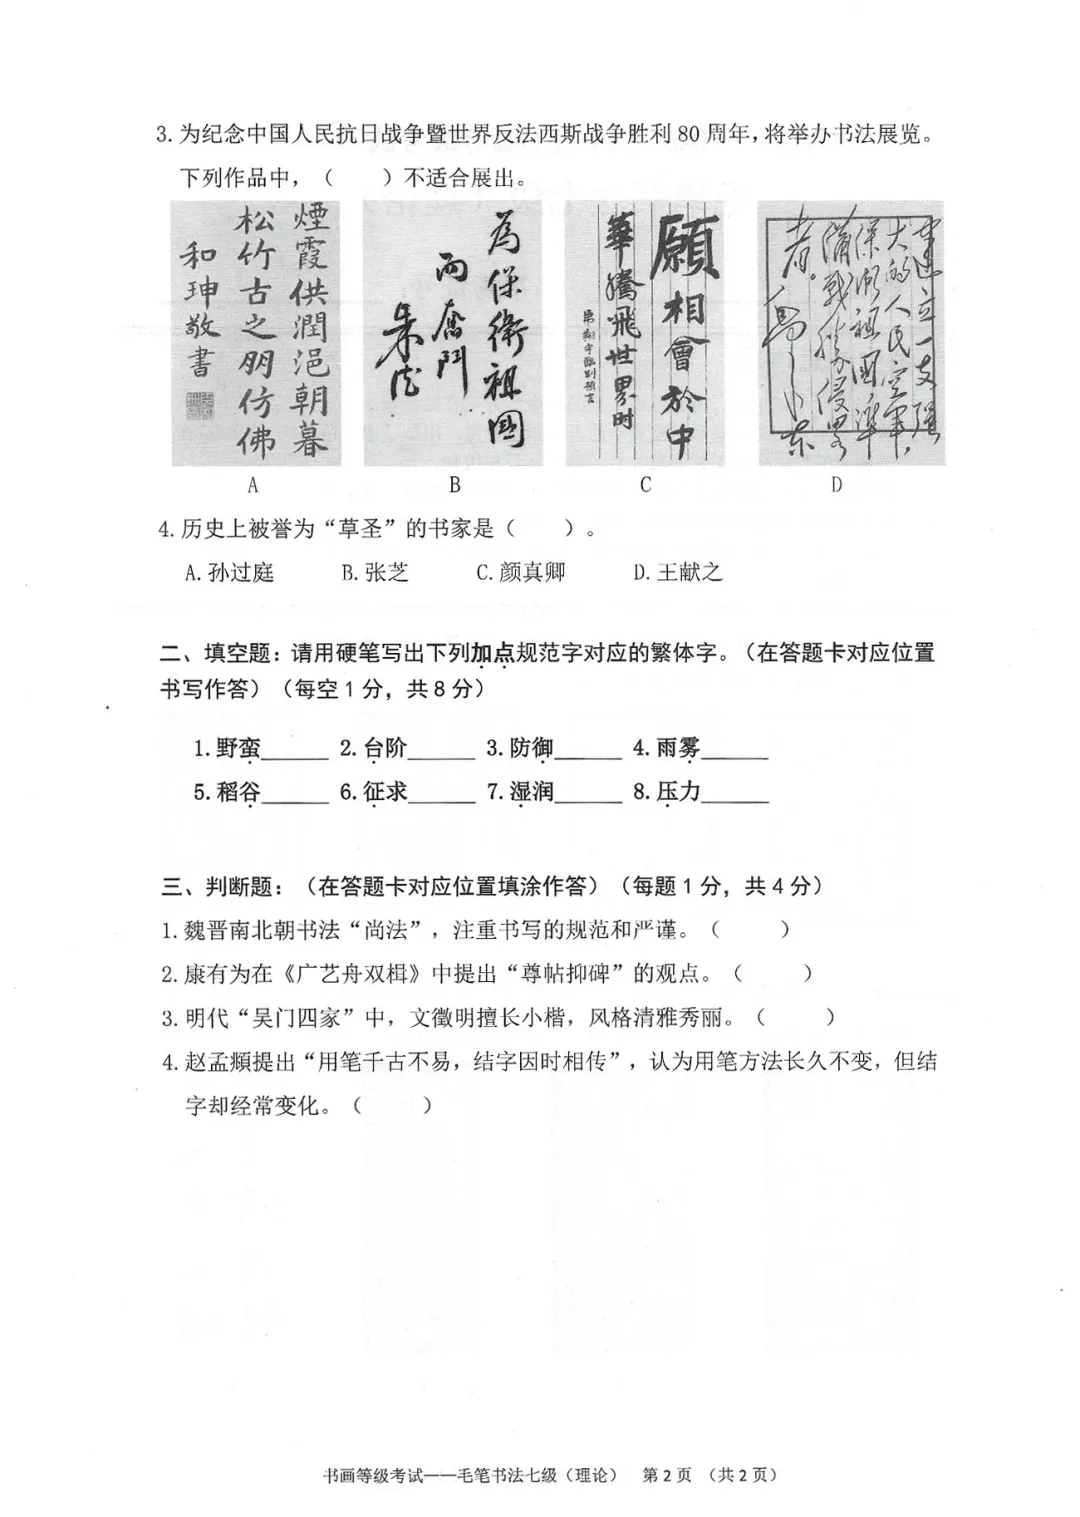 3.为纪念中国人民抗日战争暨世界反法西斯战争胜利80周年,将举办书法展览。
下列作品中，（　　）不适合展出。
煙霞供潤浥朝暮
松竹古之朋仿佛
和珅敬書
為保衛祖國
而奮鬥
朱德
願相會於中
華騰飛世界时
弟翔宇臨别預言
中建立一支强
大的人民空軍，
保衛祖國，準
備戰勝侵略
者。
毛泽东
A
B
C
D
4.历史上被誉为“草圣”的书家是（　　）。
A.孙过庭　B.张芝　C.颜真卿　D.王献之
二、填空题：请用硬笔写出下列加点规范字对应的繁体字。（在答题卡对应位置
书写作答）（每空1分，共8分）
1.野蛮______ 2.台阶______ 3.防御______ 4.雨雾______
5.稻谷______ 6.征求______ 7.湿润______ 8.压力______
三、判断题：（在答题卡对应位置填涂作答）（每题1分，共4分）
1.魏晋南北朝书法“尚法”，注重书写的规范和严谨。（　　）
2.康有为在《广艺舟双楫》中提出“尊帖抑碑”的观点。（　　）
3.明代“吴门四家”中，文徵明擅长小楷，风格清雅秀丽。（　　）
4.赵孟頫提出“用笔千古不易，结字因时相传”，认为用笔方法长久不变，但结
字却经常变化。（　　）
书画等级考试——毛笔书法七级（理论）　第2页　（共2页）